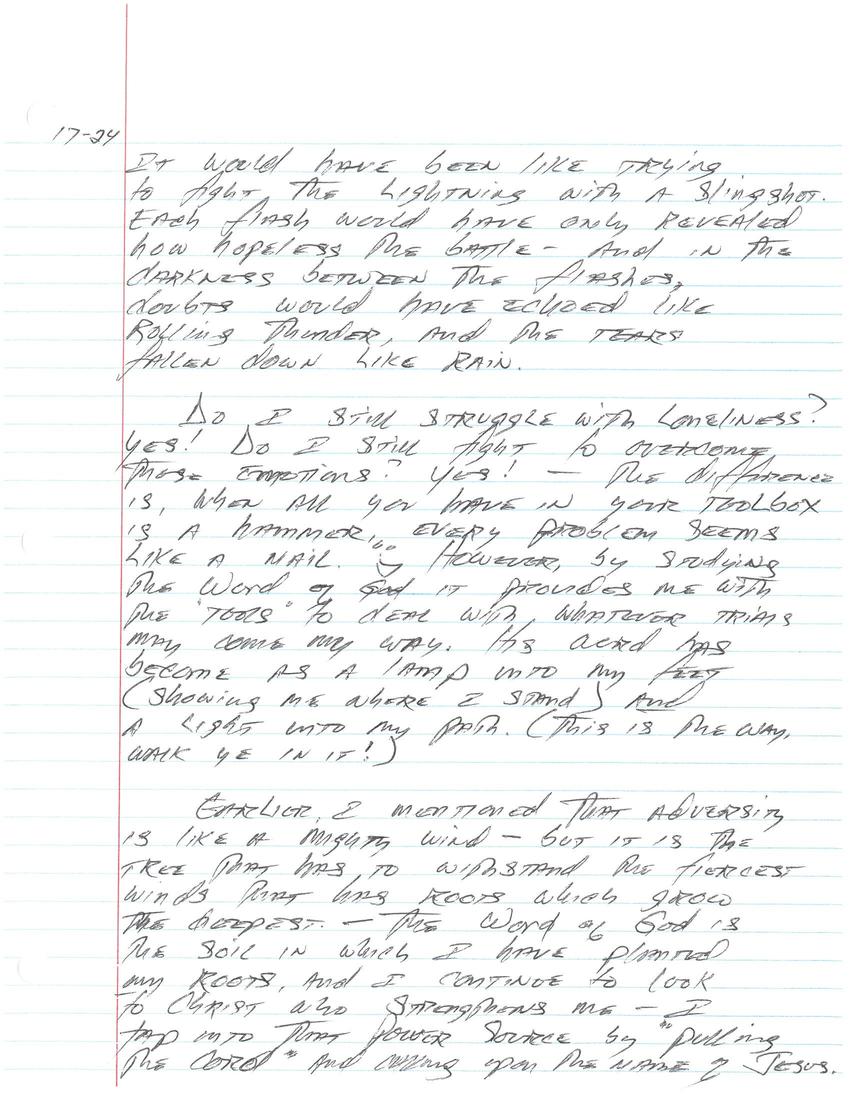 17-24
It would have been like trying
to fight the Lightning with a Slingshot.
Each flash would have only revealed
how hopeless the battle - And in the
darkness between the flashes,
doubts would have echoed like
Rolling Thunder, and the tears
fallen down like rain.
Do I still struggle with Loneliness?
Yes! Do I still fight to overcome
those emotions? Yes! - The difference
is, when all you have in your toolbox
is a hammer, every problem seems
like a nail. However, by studying
the Word of God it provides me with
the "tools" to deal with whatever trials
may come my way. His word has
become as a lamp unto my feet
(showing me where I stand) And
a light unto my path. (This is the way,
walk ye in it!)
Earlier, I mentioned that adversity
is like a mighty wind - but it is the
tree that has to withstand the fiercest
winds that has roots which grow
the deepest. - The Word of God is
the soil in which I have planted
my roots, and I continue to look
to Christ who strengthens me - I
tap into that power source by "pulling
the cord" and calling upon the name of Jesus.